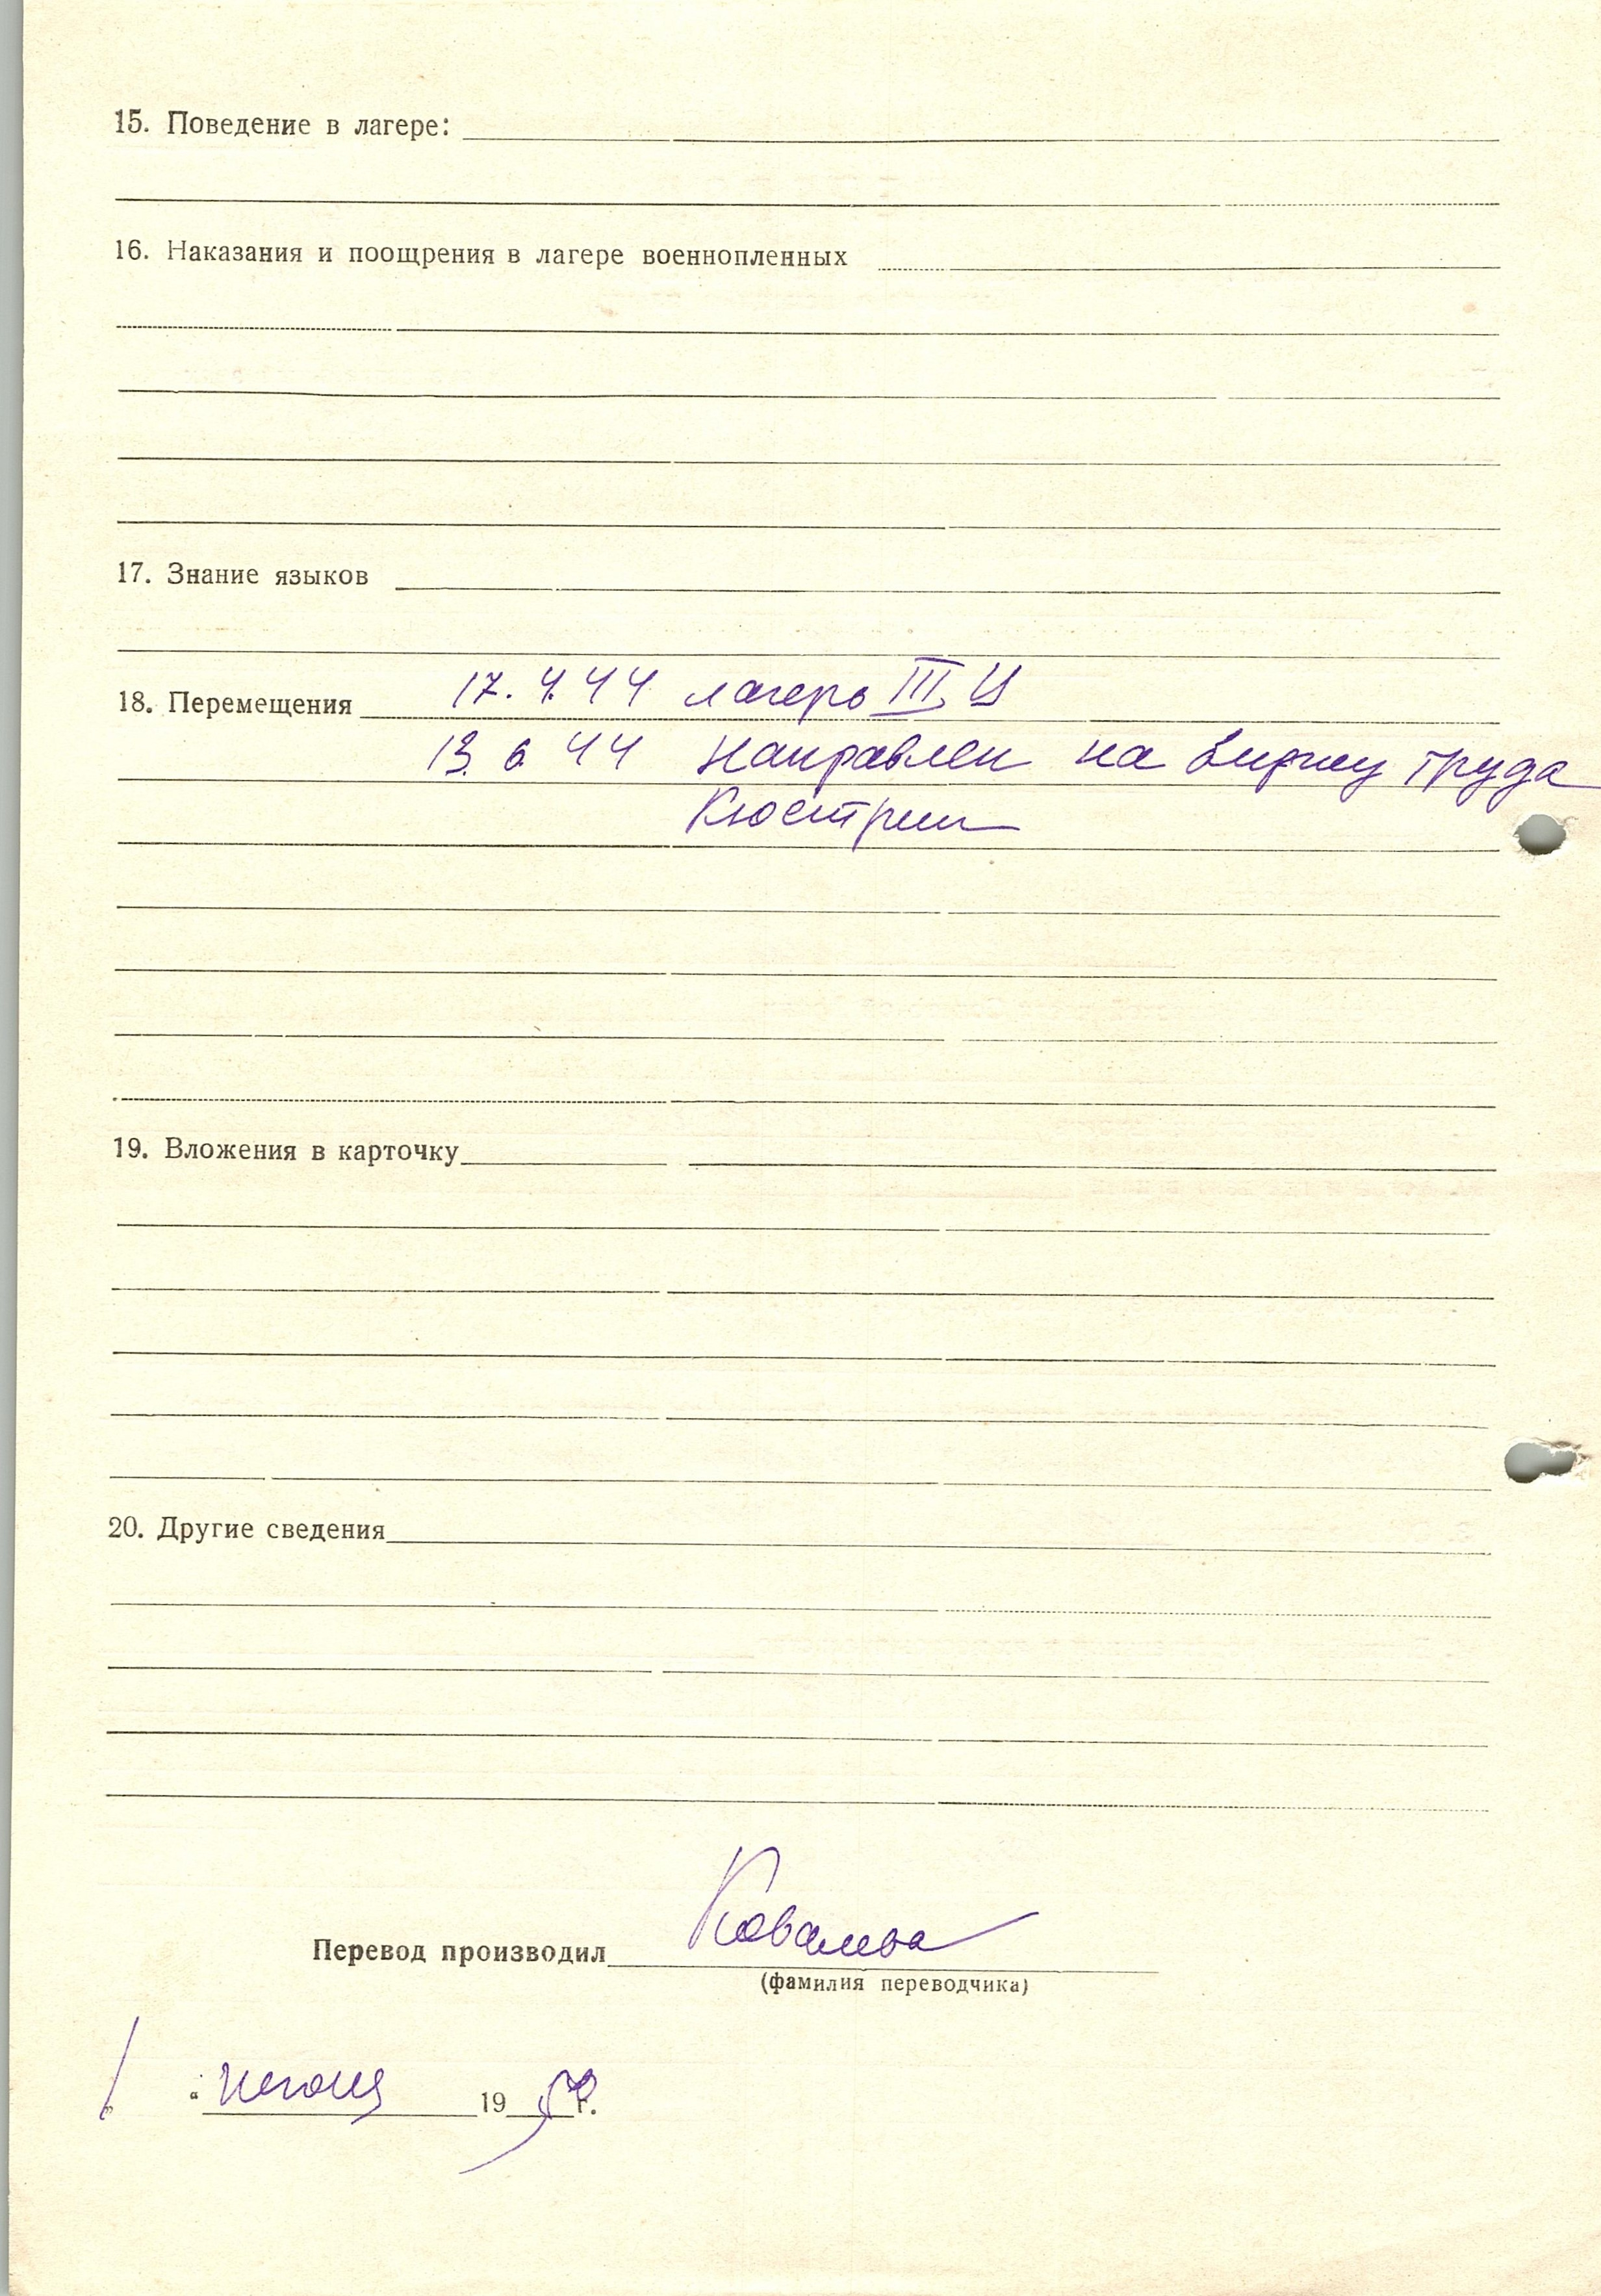 15. Поведение в лагере:
16. Наказания и поощрения в лагере военнопленных
17. Знание языков
18. Перемещения 17.4.44 лагерь III Ц
13.6.44 направлен на биржу труда
Кюстрин
19. Вложения в карточку
20. Другие сведения
Перевод производил Ковалева
(фамилия переводчика)
июня 19 г.